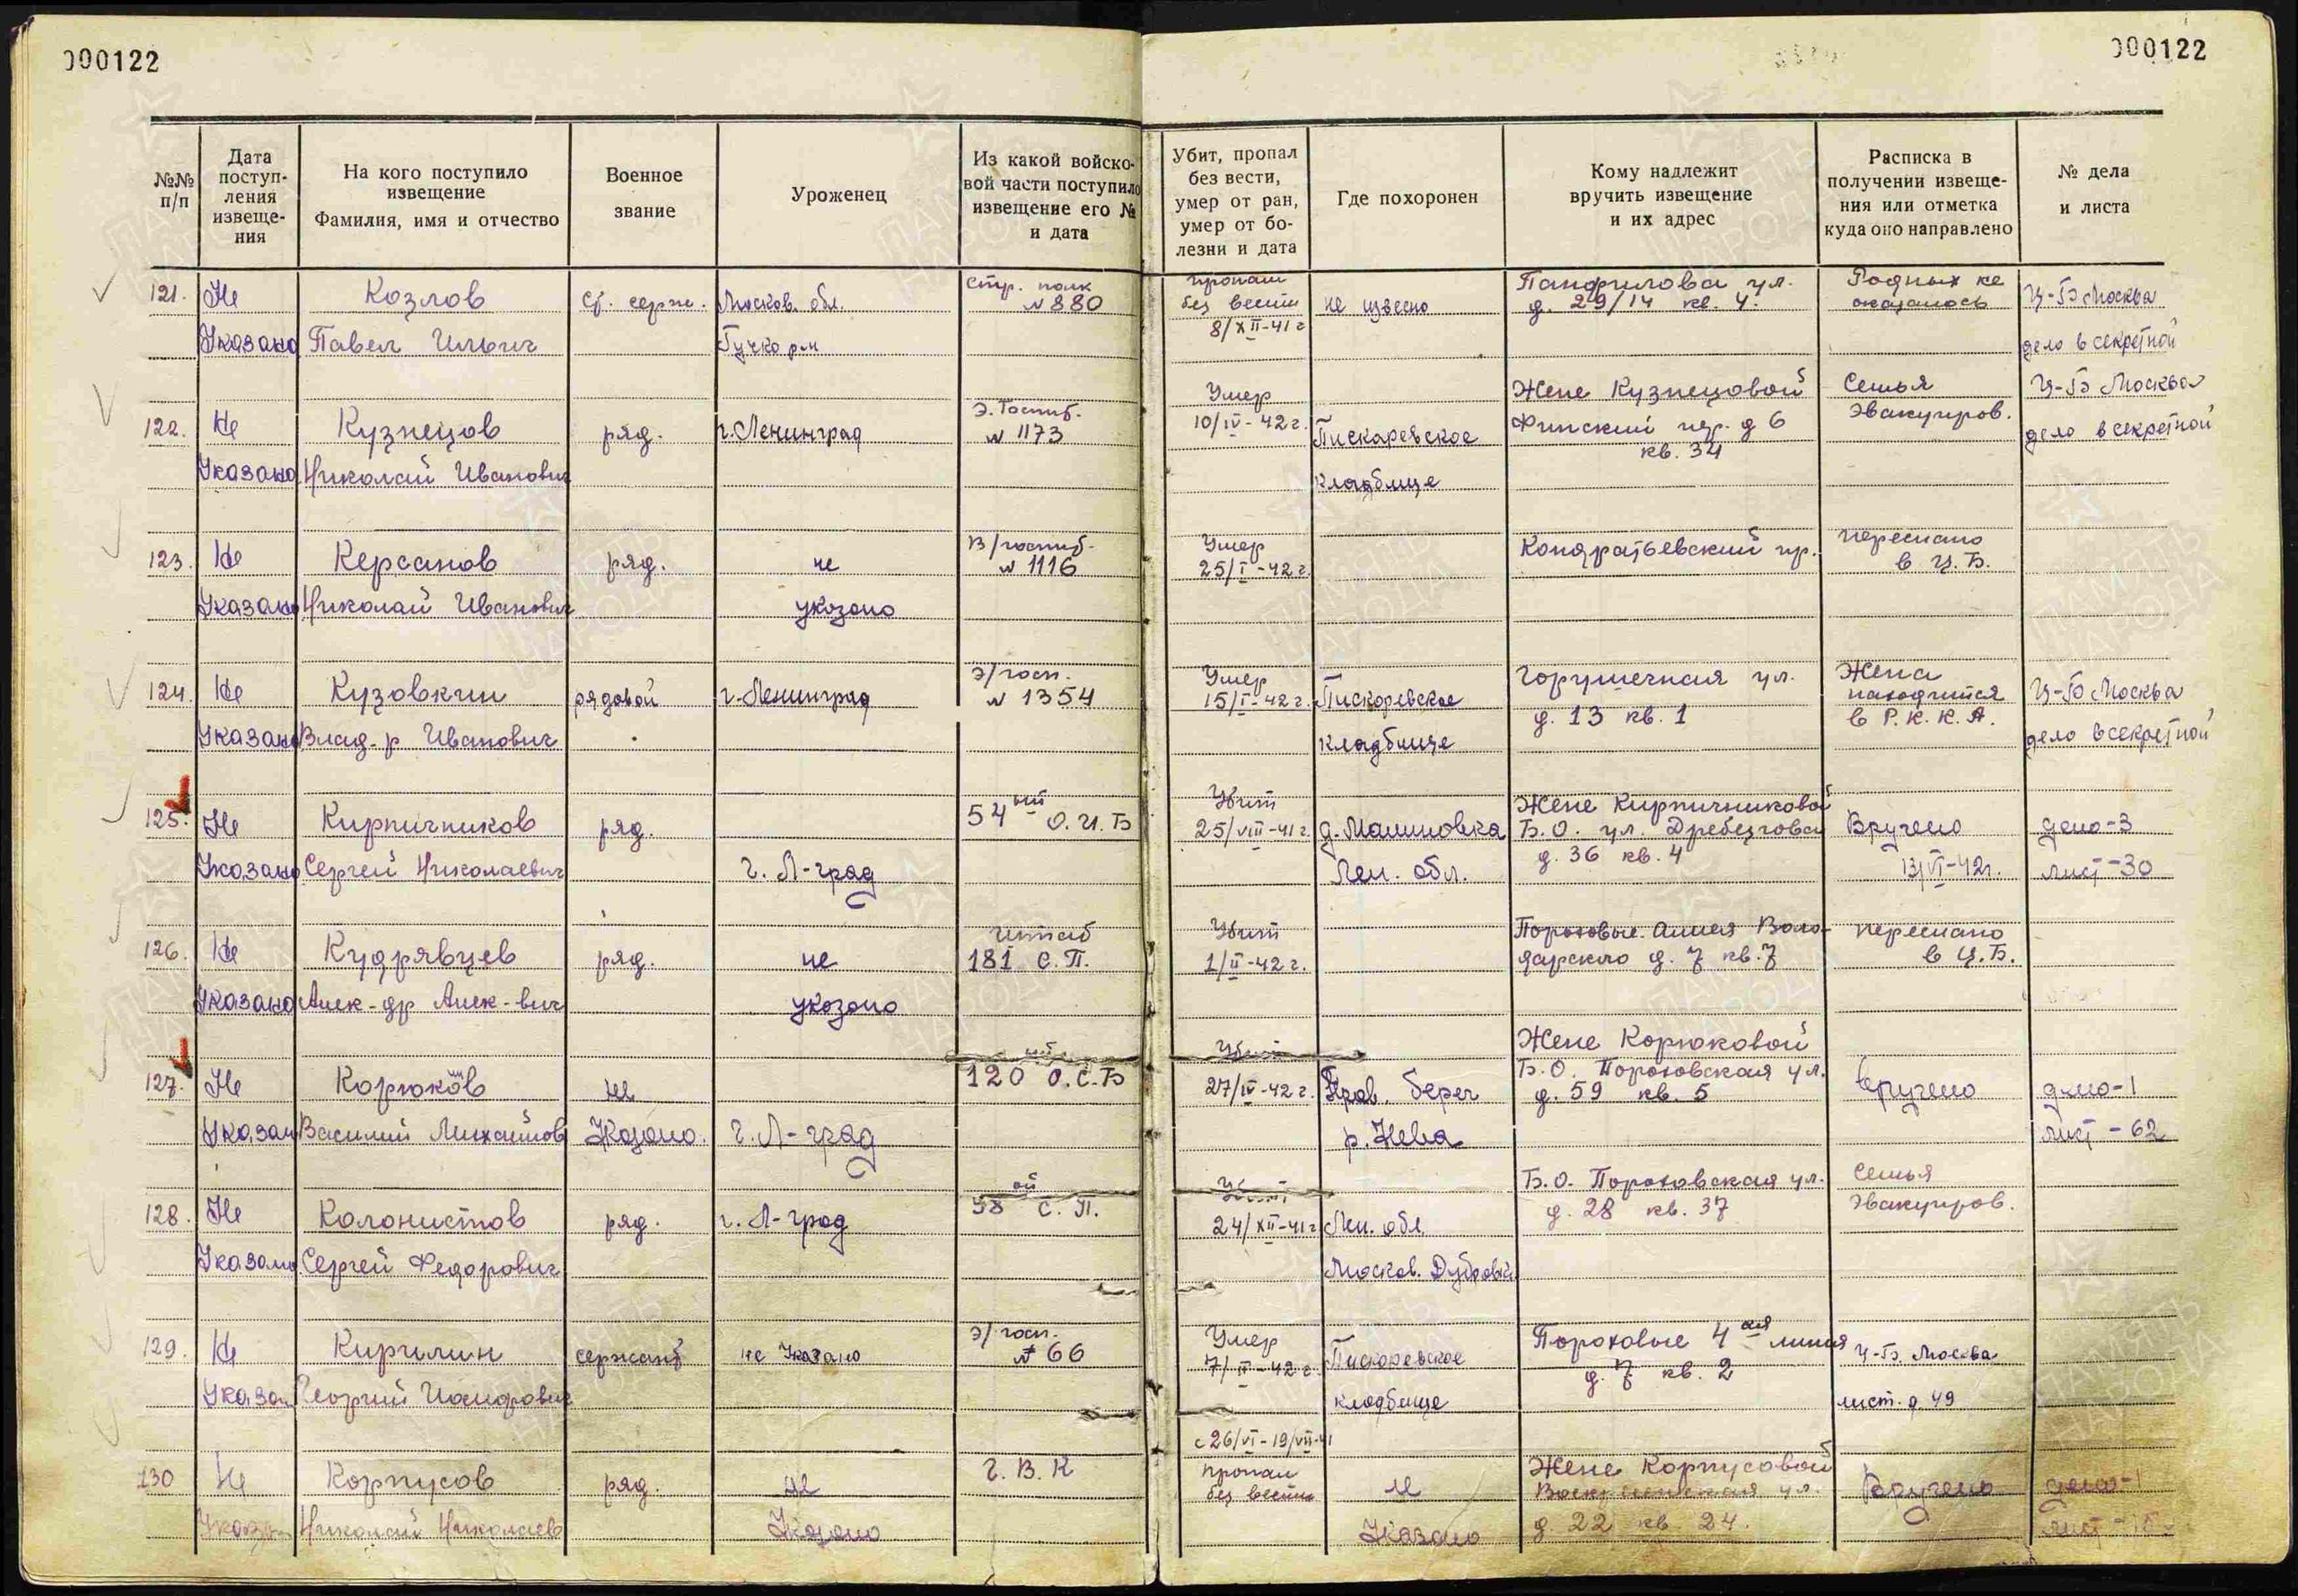 000122
000122
№№ п/п
Дата поступ-
ления
извеще-
ния
На кого поступило
извещение
Фамилия, имя и отчество
Военное
звание
Уроженец
Из какой войско-
вой части поступило
извещение его №
и дата
Убит, пропал
без вести,
умер от ран,
умер от бо-
лезни и дата
Где похоронен
Кому надлежит
вручить извещение
и их адрес
Расписка в
получении извеще-
ния или отметка
куда оно направлено
№ дела
и листа
121. Не Указано
Козлов
Павел Ильич
ст. серж.
Москов. обл.
стр. полк
№ 880
пропаш
без вести
8/XII-41 г
не извесно
Панфилова ул.
д. 29/14 кв. 4.
Родных не
оказалось
Ц-Б Москва
дело в секретной
122. Не Указано
Кузнецов
Николай Иванович
ряд.
г. Ленинград
Э. Госпит.
№ 1173
Умер
10/IV-42 г.
Пискаревское
кладбище
Жене Кузнецовой
Финский пер. д 6
кв. 34
Семья
Эвакуиров.
Ц-Б Москва
дело в секретной
123. Не Указано
Керсанов
Николай Иванович
ряд.
не
указано
В/госпит.
№ 1116
Умер
25/I-42 г.
Кондратьевский пр.
переслано
в Ц.Б.
124. Не Указано
Кузовкин
Влад-р Иванович
рядовой
г. Ленинград
Э/госп.
№ 1354
Умер
15/I-42 г.
Пискоревское
кладбище
Горушечная ул.
д. 13 кв. 1
Жена
находится
в Р.К.К.А.
Ц-Б Москва
дело в секретной
125. Не Указано
Кирпичников
Сергей Николаевич
ряд.
г. Л-град
54 ый О.И.Б
Убит
25/VIII-41 г.
д. Малиновка
Лен. обл.
Жене Кирпичниковой
Б.О. ул.
д. 36 кв. 4
Вручено
13/VI-42г.
дело-3
лист-30
126. Не Указано
Кудрявцев
Алек-др Алек-вич
ряд.
не
указано
штаб
181 С.П.
Убит
1/II-42 г.
Пороховые. Аллея Воло-
дарского д. 7 кв. 7
переслано
в Ц.Б.
127. Не Указан
Корюков
Василий Михайлов
не
Указано.
г. Л-град
120 О.С.Б
Убит
27/IV-42 г.
Прав. берег
р. Нева
Жене Корюковой
Б.О. Пороховская ул.
д. 59 кв. 5
вручено
дело-1
лист-62
128. Не Указано
Колонистов
Сергей Федорович
ряд.
г. Л-град
ой С.П.
24/XII-41 г
Лен. обл
Москов. Дубровка
Б.О. Пороховская ул.
д. 28 кв. 37
Семья
Эвакуиров.
129. Не Указан
Кирилин
Георгий
сержант
не Указано
Э/госп.
№ 66
Умер
7/II-42 г.
Пискоревское
кладбище
Пороховые 4 ая линия
д. 7 кв. 2
Ц-Б. Москва
лист. д. 49
130 Не
Корпусов
Николай Николаев
ряд.
не
Указано
Г.В.К
с 26/VI-19/VII-41
пропал
без вести
не
Указано
Жене Корпусовой
д. 22 кв 24.
Вручено
дело-1